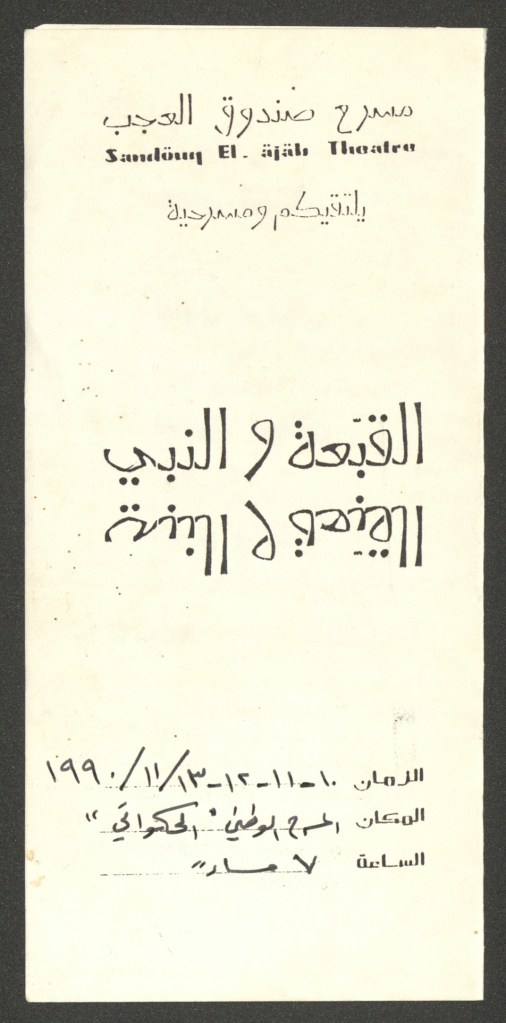 مسرح صندوق العجب
Sandöuq El - äjäb Theatre
يلتقيكم ومسرحية
القبّعة و النبي
الزمان ١٠-١١-١٢-١٣/١١/١٩٩٠
المكان المسرح الوطني "الحكواتي"
الساعة ٧ مساءً